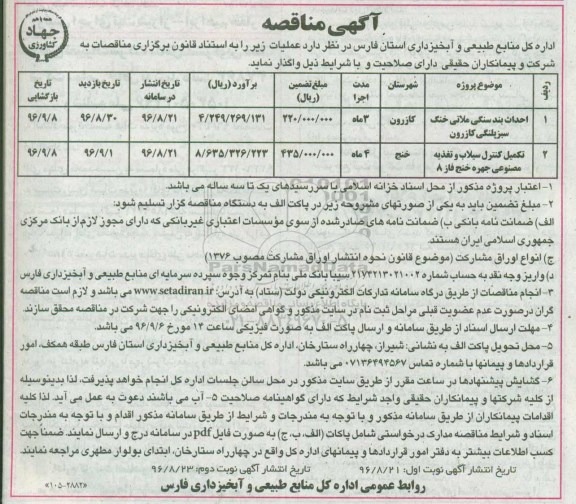 آگهی مناقصه
جهاد کشاورزی
اداره کل منابع طبیعی و آبخیزداری استان فارس در نظر دارد عملیات زیر را به استناد قانون برگزاری مناقصات به
شرکت و پیمانکاران حقیقی دارای صلاحیت و با شرایط ذیل واگذار نماید.
ردیف | موضوع پروژه | شهرستان | مدت اجرا | مبلغ تضمین (ریال) | برآورد (ریال) | تاریخ انتشار در سامانه | تاریخ بازدید | تاریخ بازگشایی
۱ | احداث بند سنگی ملاتی خنگ سبزپلنگی کازرون | کازرون | ۳ ماه | ۲۲۰/۰۰۰/۰۰۰ | ۴/۲۴۹/۲۶۹/۱۳۱ | ۹۶/۸/۲۱ | ۹۶/۸/۳۰ | ۹۶/۹/۸
۲ | تکمیل کنترل سیلاب و تغذیه مصنوعی جهره خنج فاز ۸ | خنج | ۴ ماه | ۴۳۵/۰۰۰/۰۰۰ | ۸/۶۳۵/۳۲۶/۲۲۳ | ۹۶/۸/۲۱ | ۹۶/۹/۱ | ۹۶/۹/۸
۱- اعتبار پروژه مذکور از محل اسناد خزانه اسلامی با سررسیدهای یک تا سه ساله می باشد.
۲- مبلغ تضمین باید به یکی از صورتهای مشروحه زیر در پاکت الف به دستگاه مناقصه گزار تسلیم شود:
الف) ضمانت نامه بانکی ب) ضمانت نامه های صادرشده از سوی مؤسسات اعتباری غیربانکی که دارای مجوز لازم از بانک مرکزی
جمهوری اسلامی ایران هستند.
ج) انواع اوراق مشارکت (موضوع قانون نحوه انتشار اوراق مشارکت مصوب ۱۳۷۶)
د) واریز وجه نقد به حساب شماره ۲۱۷۳۲۱۳۰۲۱۰۰۲ سیبا بانک ملی بنام تمرکز وجوه سپرده سرمایه ای منابع طبیعی و آبخیزداری فارس
۳- انجام مناقصات از طریق درگاه سامانه تدارکات الکترونیکی دولت (ستاد) به آدرس: www.setadiran.ir می باشد و لازم است مناقصه
گران درصورت عدم عضویت قبلی مراحل ثبت نام در سایت مذکور و گواهی امضای الکترونیکی را جهت شرکت در مناقصه محقق سازند.
۴- مهلت ارسال اسناد از طریق سامانه و ارسال پاکت الف به صورت فیزیکی ساعت ۱۴ مورخ ۹۶/۹/۶ می باشد.
۵- محل تحویل پاکت الف به نشانی: شیراز، چهارراه ستارخان، اداره کل منابع طبیعی و آبخیزداری استان فارس طبقه همکف، امور
قراردادها و پیمانها با شماره تماس ۰۷۱۳۶۴۹۴۵۶۷ می باشد.
۶- گشایش پیشنهادها در ساعت مقرر از طریق سایت مذکور در محل سالن جلسات اداره کل انجام خواهد پذیرفت، لذا بدینوسیله
از کلیه شرکتها و پیمانکاران حقیقی واجد شرایط که دارای گواهینامه صلاحیت ۵- آب می باشند دعوت به عمل می آید. لذا کلیه
اقدامات پیمانکاران از طریق سامانه مذکور و با توجه به مندرجات و شرایط از طریق سامانه مذکور اقدام و با توجه به مندرجات
اسناد و شرایط مناقصه مدارک درخواستی شامل پاکات (الف، ب، ج) به صورت فایل pdf در سامانه درج و ارسال نمایند. ضمنا جهت
کسب اطلاعات بیشتر به دفتر امور قراردادها و پیمانهای اداره کل واقع در چهارراه ستارخان، ابتدای بولوار مطهری مراجعه نمایند.
تاریخ انتشار آگهی نوبت اول: ۹۶/۸/۲۱ تاریخ انتشار آگهی نوبت دوم: ۹۶/۸/۲۳
روابط عمومی اداره کل منابع طبیعی و آبخیزداری فارس
«۱۰۵-۲۸۸۲»